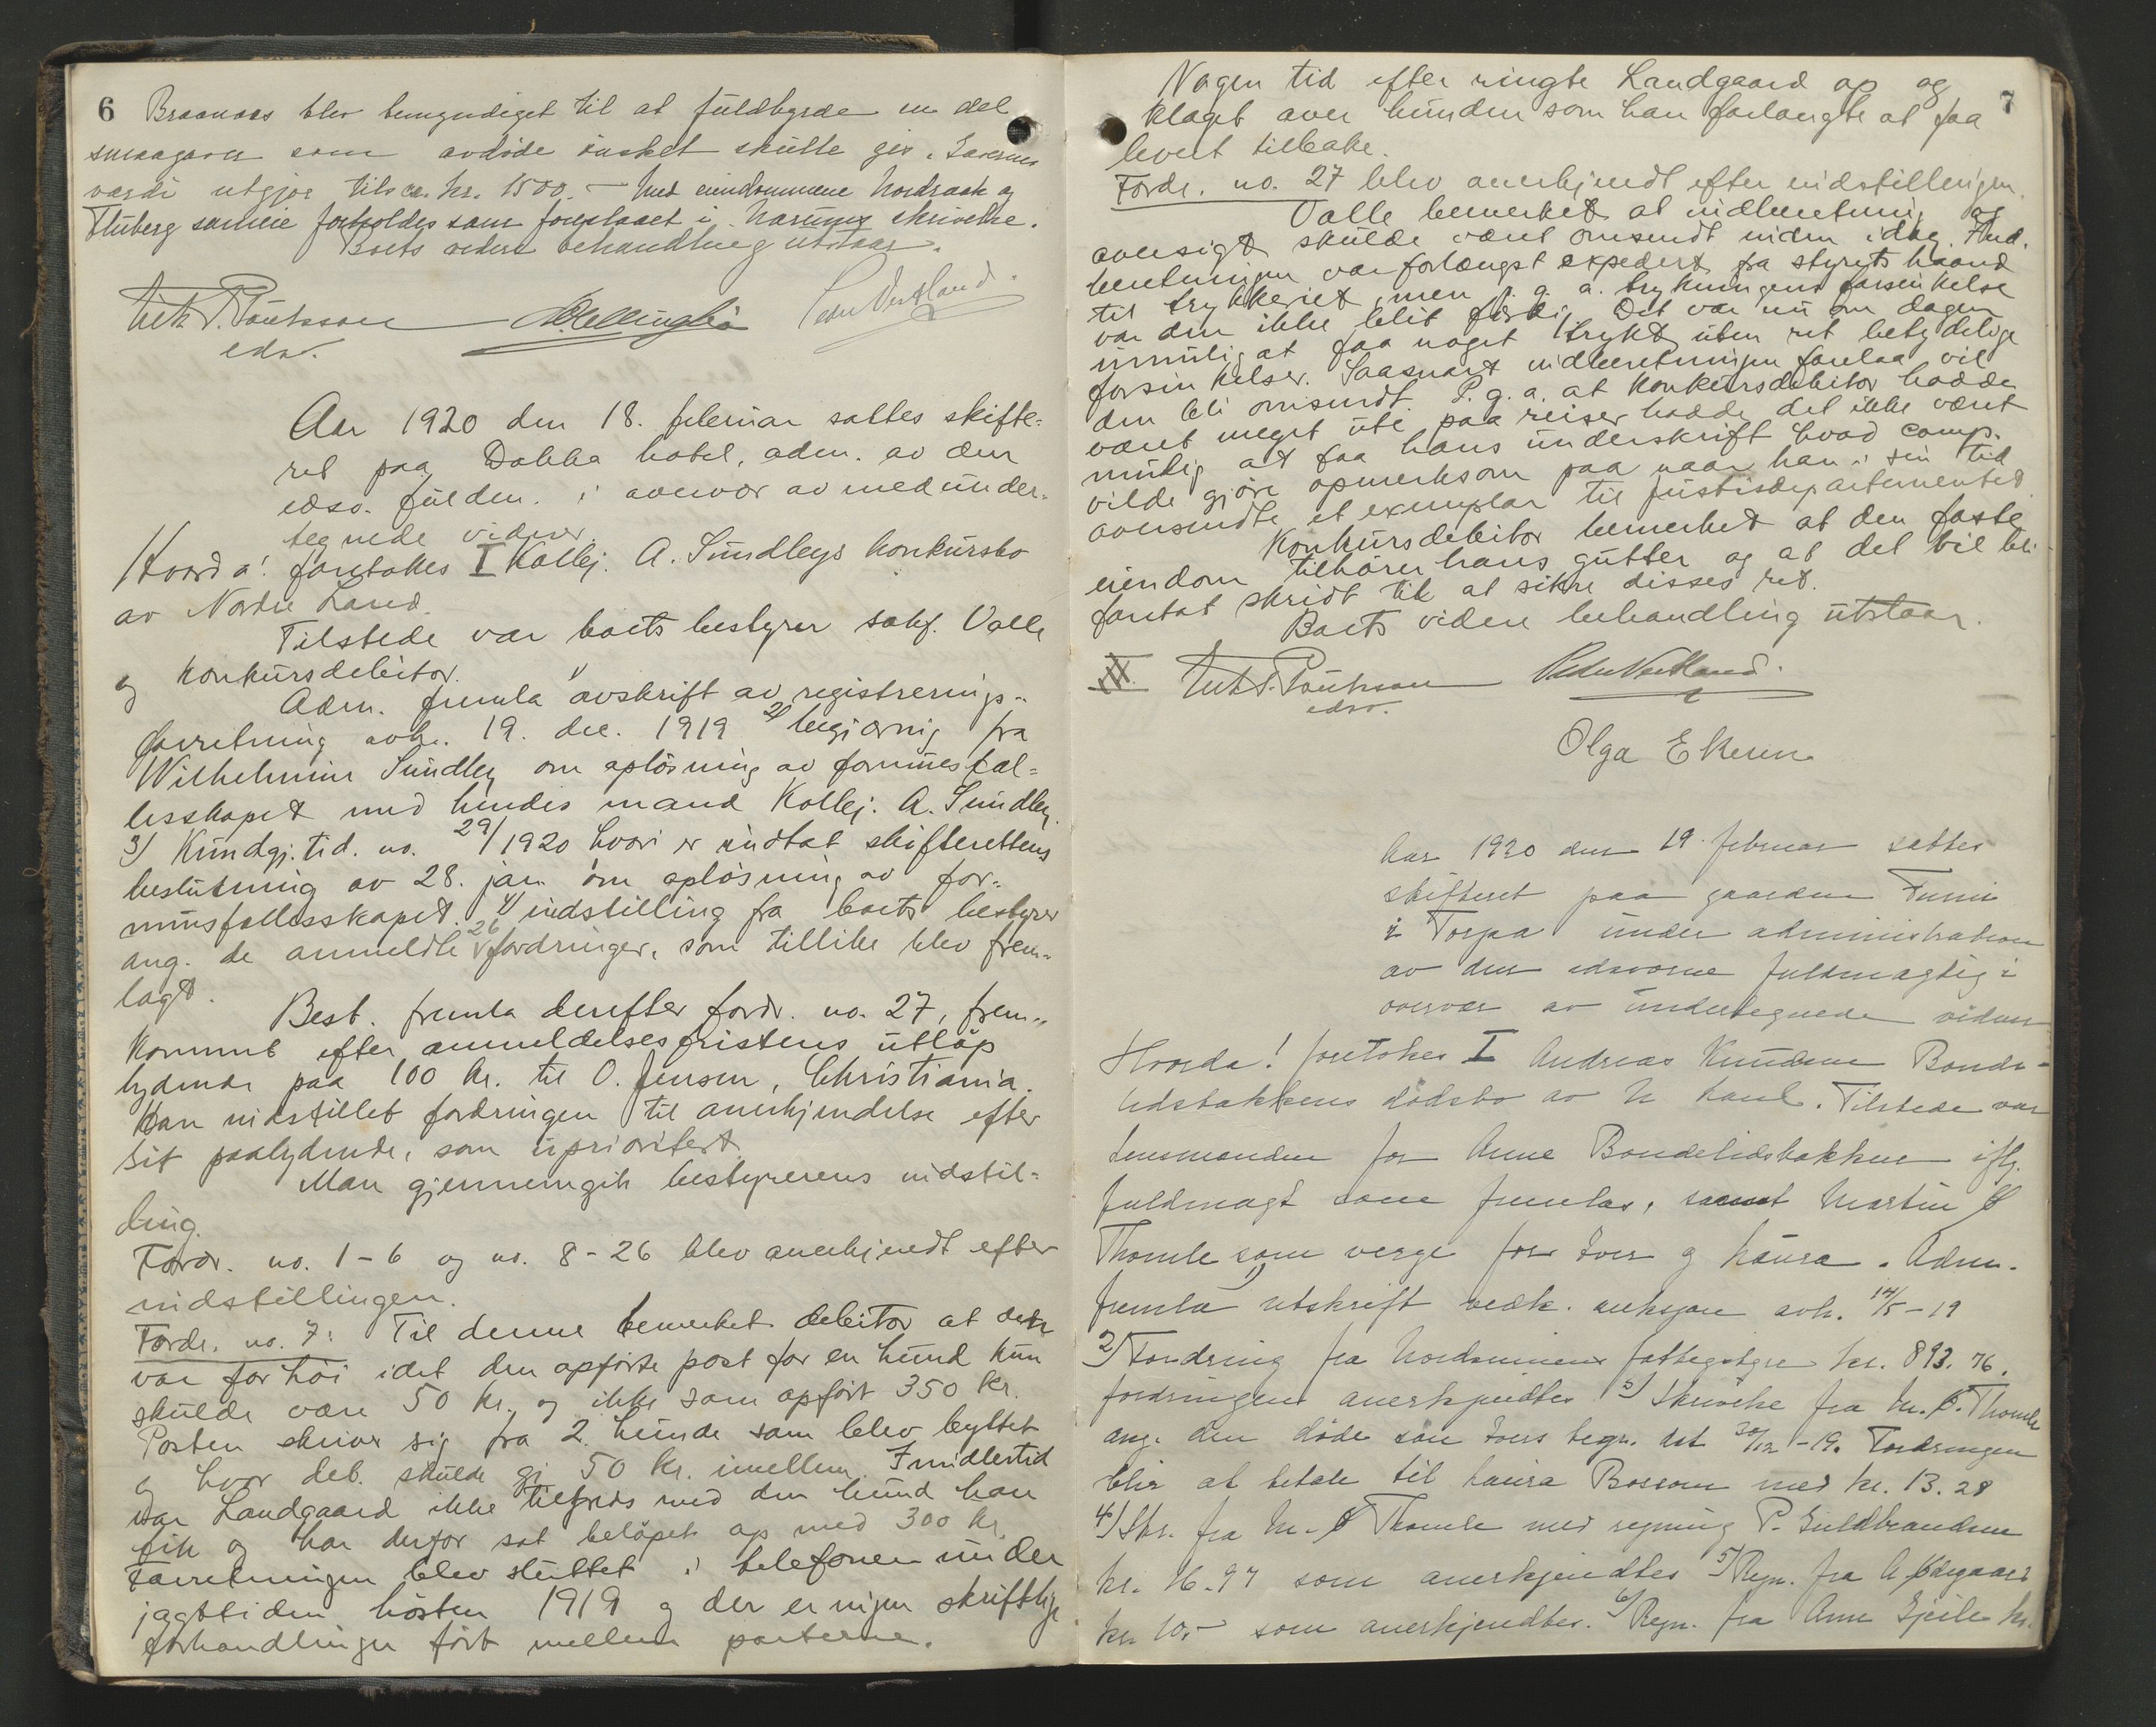 6 Braanaas blev bemyndiget til at fuldbyrde en del
smaagaver som avdøde ønsket skulle gis. Gavernes
værdi utgjør tils ca. kr. 1500.- Med eiendommene Nordraak og
Fluberg sameie forholdes som foreslaaet i Narums skrivelse.
Boets videre behandling utstaar.
edsv.
Aar 1920 den 18. februar sattes skifte-
ret paa Dokka hotel, adm. av den
edsv. fuldm. i overvær av medunder-
tegnede vidner
Hvorda! foretokes I Kollbj. A. Sundbys konkursbo
av Nordre Land.
Tilstede var boets bestyrer sakf. Valle
og konkursdebitor.
Adm. fremla 1/ avskrift av registrerings-
forretning avh. 19. dec. 1919 2/ begjæring fra
Wilhelmine Sundby om opløsning av formuesfæl-
lesskapet med hendes mand Kollbj. A. Sundby.
3/ Kundgj. tid. no. 29/1920 hvori er indtat skifterettens
beslutning av 28. jan. om opløsning av for-
muesfællesskapet. 4/ indstilling fra boets bestyrer
ang. de anmeldte 26 fordringer, som tillike blev frem-
lagt.
Best. fremla derefter fordr. no. 27, frem-
kommet efter anmeldelsesfristens utløp
lydende paa 100 kr. til O. Jensen, Christiania.
Han indstillet fordringen til anerkjendelse efter
sit paalydende, som uprioritert.
Man gjennemgik bestyrerens indstil-
ling.
Fordr. no. 1-6 og no. 8-26 blev anerkjendt efter
indstillingen.
Fordr. no. 7: Til denne bemerket debitor at den
var for høi idet den opførte post for en hund kun
skulde være 50 kr. og ikke som opført 350 kr.
Posten skriver sig fra 2 hunde som blev byttet
og hvor deb. skulde gi 50 kr. imellem. Imidlertid
var Landgaard ikke tilfreds med den hund han
fik og har derfor sat beløpet op med 300 kr.
Forretningen blev sluttet i telefonen under
jagttiden høsten 1919 og der er ingen skriftlige
forhandlinger ført mellem parterne.
7
Nogen tid efter ringte Landgaard op og
klaget over hunden som han forlangte at faa
levert tilbake.
Fordr. no. 27 blev anerkjendt efter indstillingen.
Valle bemerket at indberetning og
oversigt skulde været omsendt inden idag. Ind-
beretningen var forlængst expedert fra styrets haand
til trykkeriet, men p. g. a. trykningens forsinkelse
var den ikke blit færdig. Det var nu om dagen
umulig at faa noget trykt uten ret betydelige
forsinkelser. Saasnart indberetningen forelaa vil
den bli omsendt. P. g. a. at konkursdebitor hadde
været meget ute paa reiser hadde det ikke været
mulig at faa hans underskrift hvad comp.
vilde gjøre opmerksom paa naar han i sin tid
oversendte et exemplar til justisdepartementet.
Konkursdebitor bemerket at den faste
eiendom tilhører hans gutter og at det vil bli
foretat skridt til at sikre disses ret.
Boets videre behandling utstaar.
edsv.
Olga Ekern
Aar 1920 den 19. februar sattes
skifteret paa gaarden
i Torpa under administration
av den edsvorne fuldmægtig i
overvær av undertegnede vidner
Hvorda! foretokes I Andreas Knudsen Bonde-
lidsbakkens dødsbo av N. Land. Tilstede var
lensmanden for Anne Bondelidsbakken iflg.
fuldmagt som fremlas, samt Martin O
Thomle som verge for Iver og Laura. Adm.
fremla 1/ utskrift vedk. auksjon avh. 14/5-19
2/ Fordring fra Nordsinnens fattigstyre kr. 893.76.
fordringen anerkjendtes 3/ Skrivelse fra M. O. Thomle
ang. den døde søn Ivers begr. dat. 30/12-19. Fordringen
blir at betale til Laura Bossom med kr. 13.28
4/ Skr. fra M. O Thomle med regning P. Guldbrandsen
kr. 16.97 som anerkjendtes 5/ Regn. fra A. Ødegaard
kr. 10.- som anerkjendtes. 6/ Regn. fra Anne Gjeile kr.